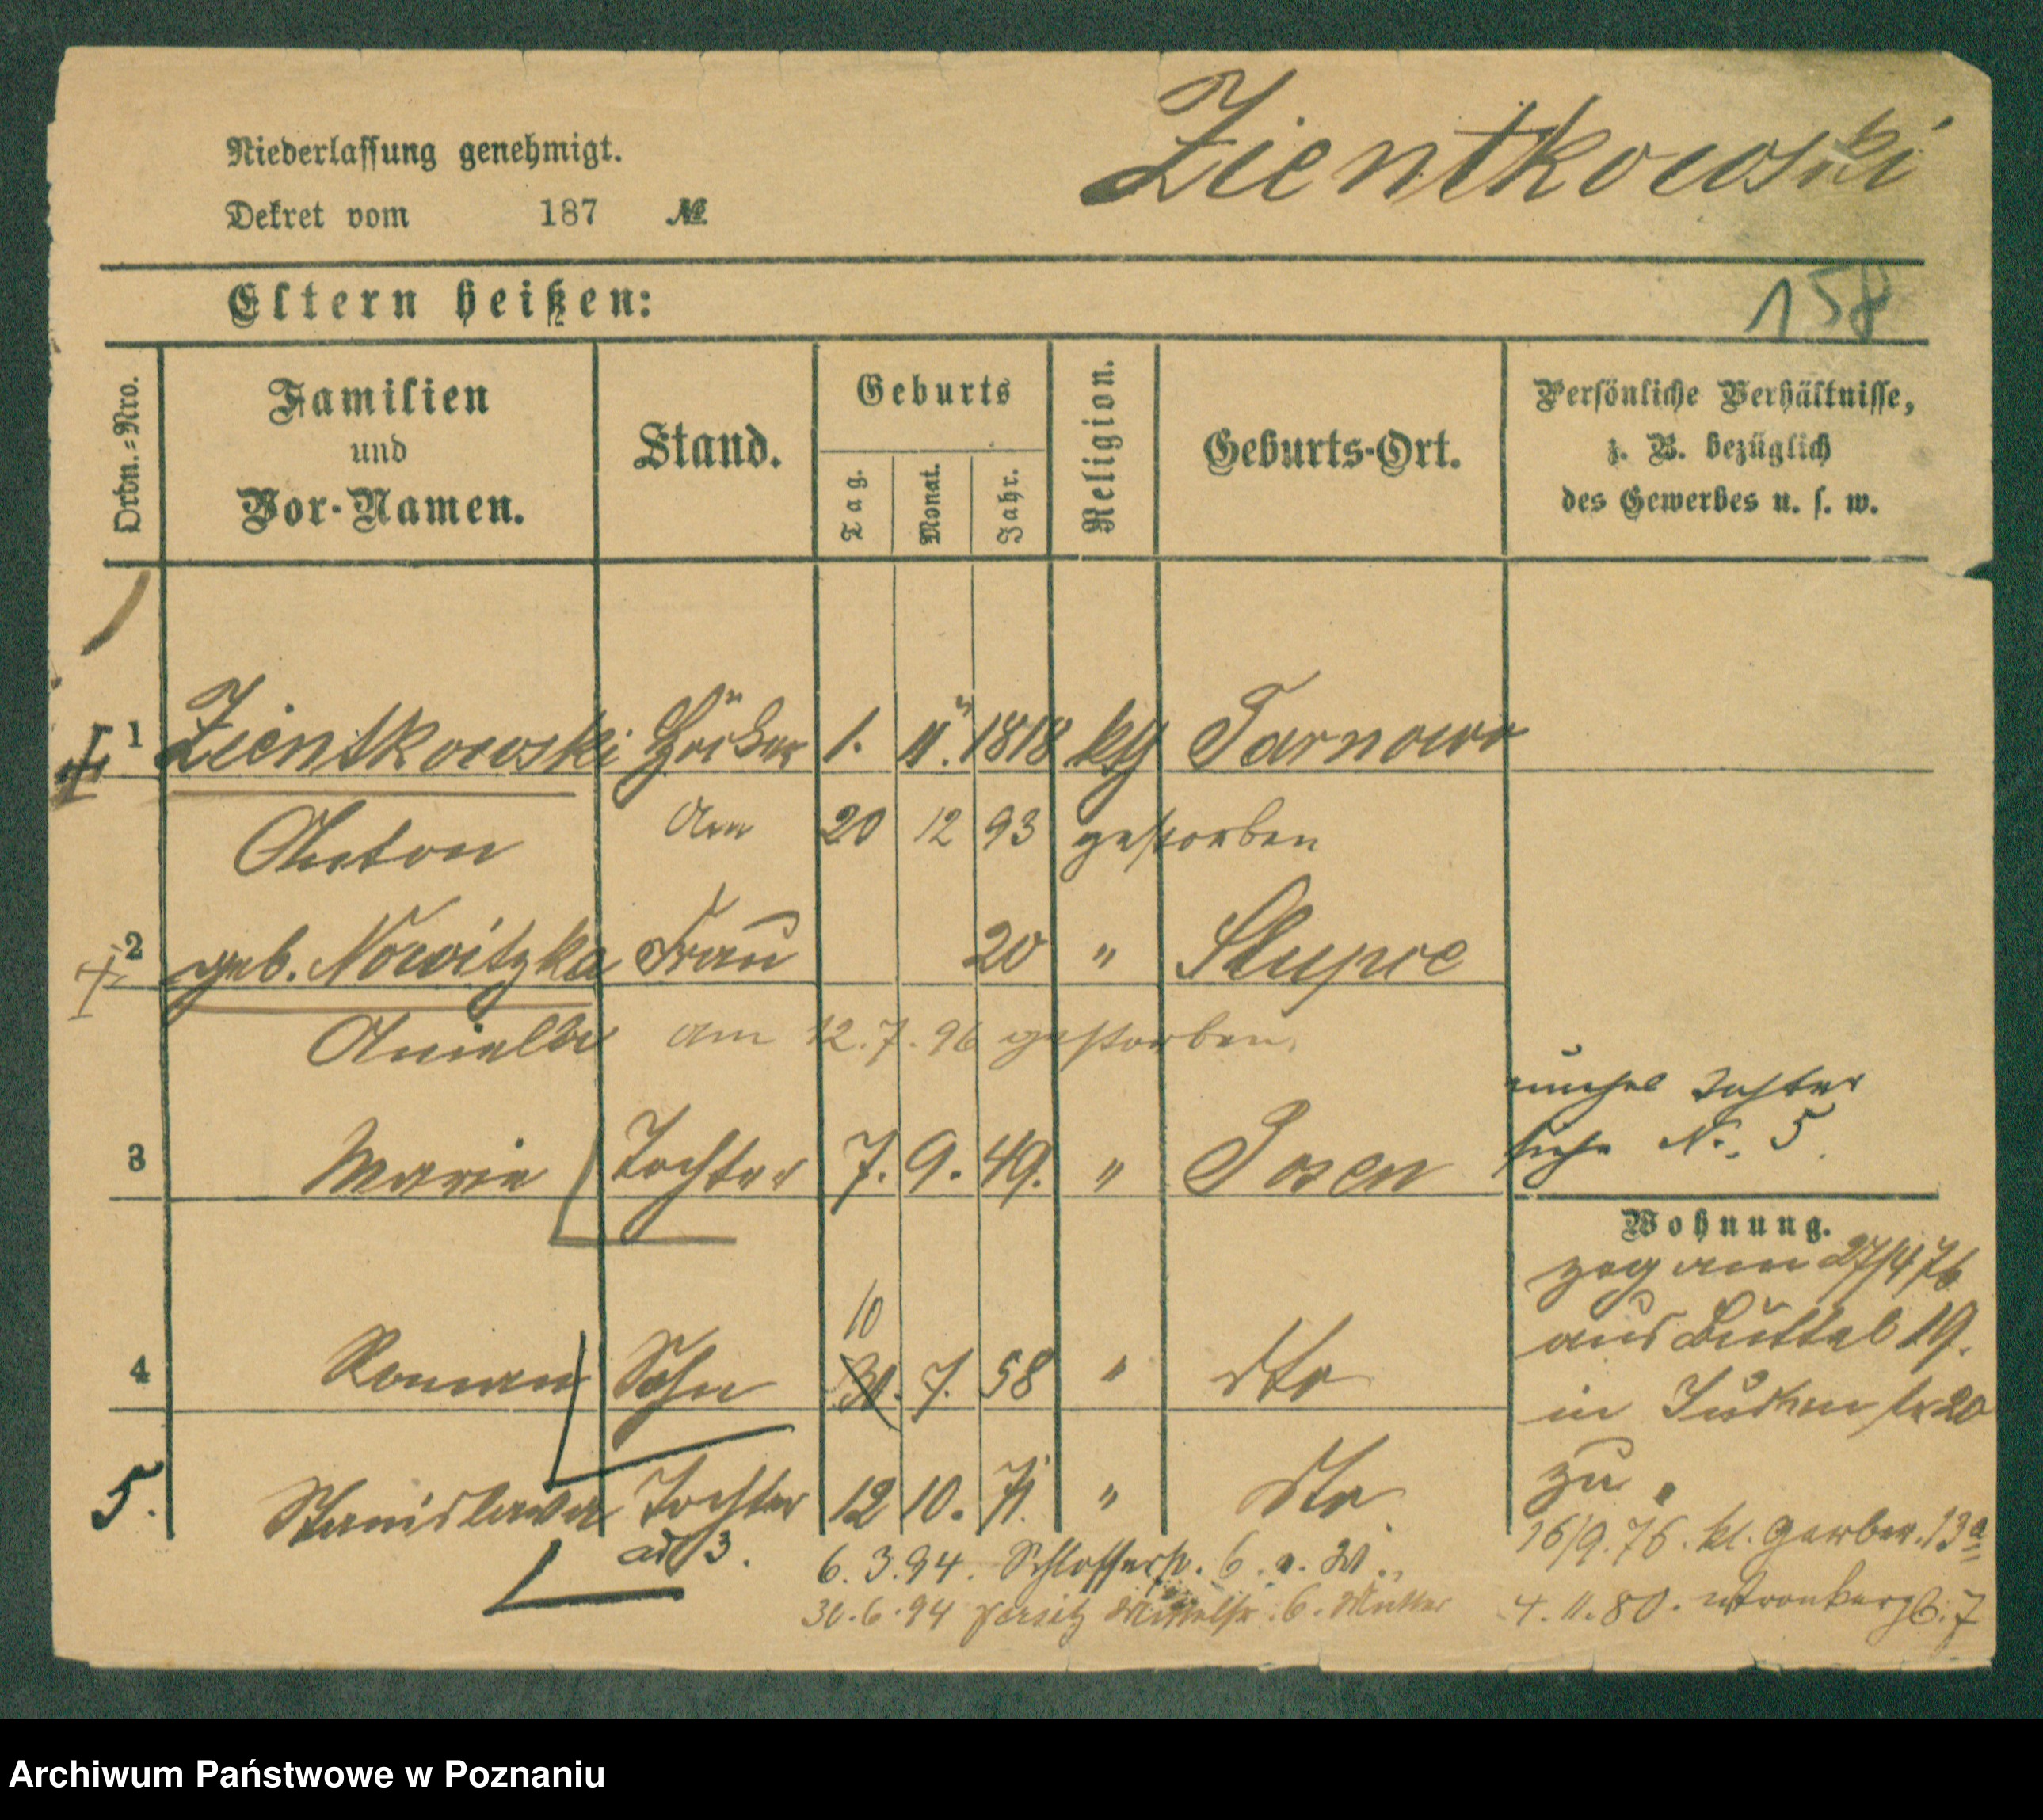 Niederlassung genehmigt.
Dekret vom 187 №
Zientkowski
158
Eltern heißen:
Ordn.-Nro.
Familien
und
Vor-Namen.
Stand.
Geburts
Tag.
Monat.
Jahr.
Religion.
Geburts-Ort.
Persönliche Verhältnisse,
z. B. bezüglich
des Gewerbes u. s. w.
1 Zientkowski Höker 1. 11. 1818 kth Tarnowo
Anton am 20 12 93 gestorben
2 geb. Nowitzka Frau 20 " Slupce
Aniela am 12.7.96 gestorben.
unehel Tochter
siehe No. 5.
3 Marie Tochter 7. 9. 49. " Posen
Wohnung.
zog am 27/4 76
aus Büttel 19.
in Judenstr 20
zu.
10
4 Roman Sohn 30. 7. 58 " dto
5. Stanislawa Tochter 12 10. 71. " dto
ad 3.
16/9.76. kl. Gerber. 13a
6.3.94. Schlosserstr. 6.
4.11.80. Wronkerg 6.7
30.6.94 Jersitz 6. Mutter